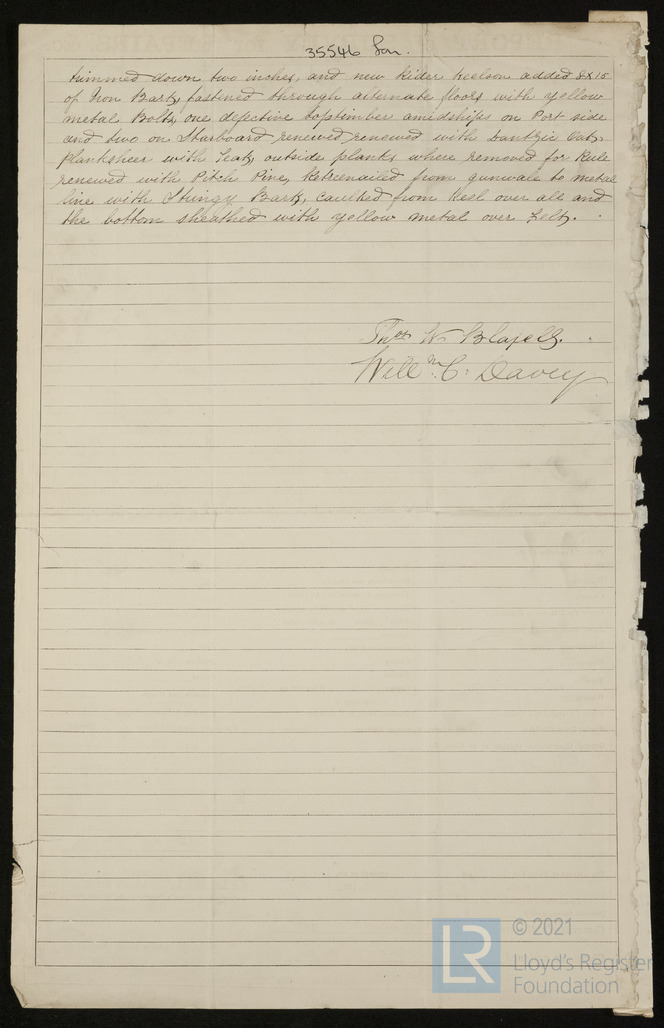 35546 Lon.
trimmed down two inches, and new Rider Keelson added 8x15
of Iron Bark, fastened through alternate floors with yellow
metal Bolts, one defective toptimber amidships on Port side
and two on Starboard renewed renewed with Dantzic Oak,
Planksheer with Teak, outside planks where removed for Rule
renewed with Pitch Pine, Retreenailed from gunwale to metal
line with Stringy Bark, caulked from Keel over all and
the bottom sheathed with yellow metal over Felt.
Thos W
Willm C. Davey
© 2021
LR
Lloyd's Register
Foundation